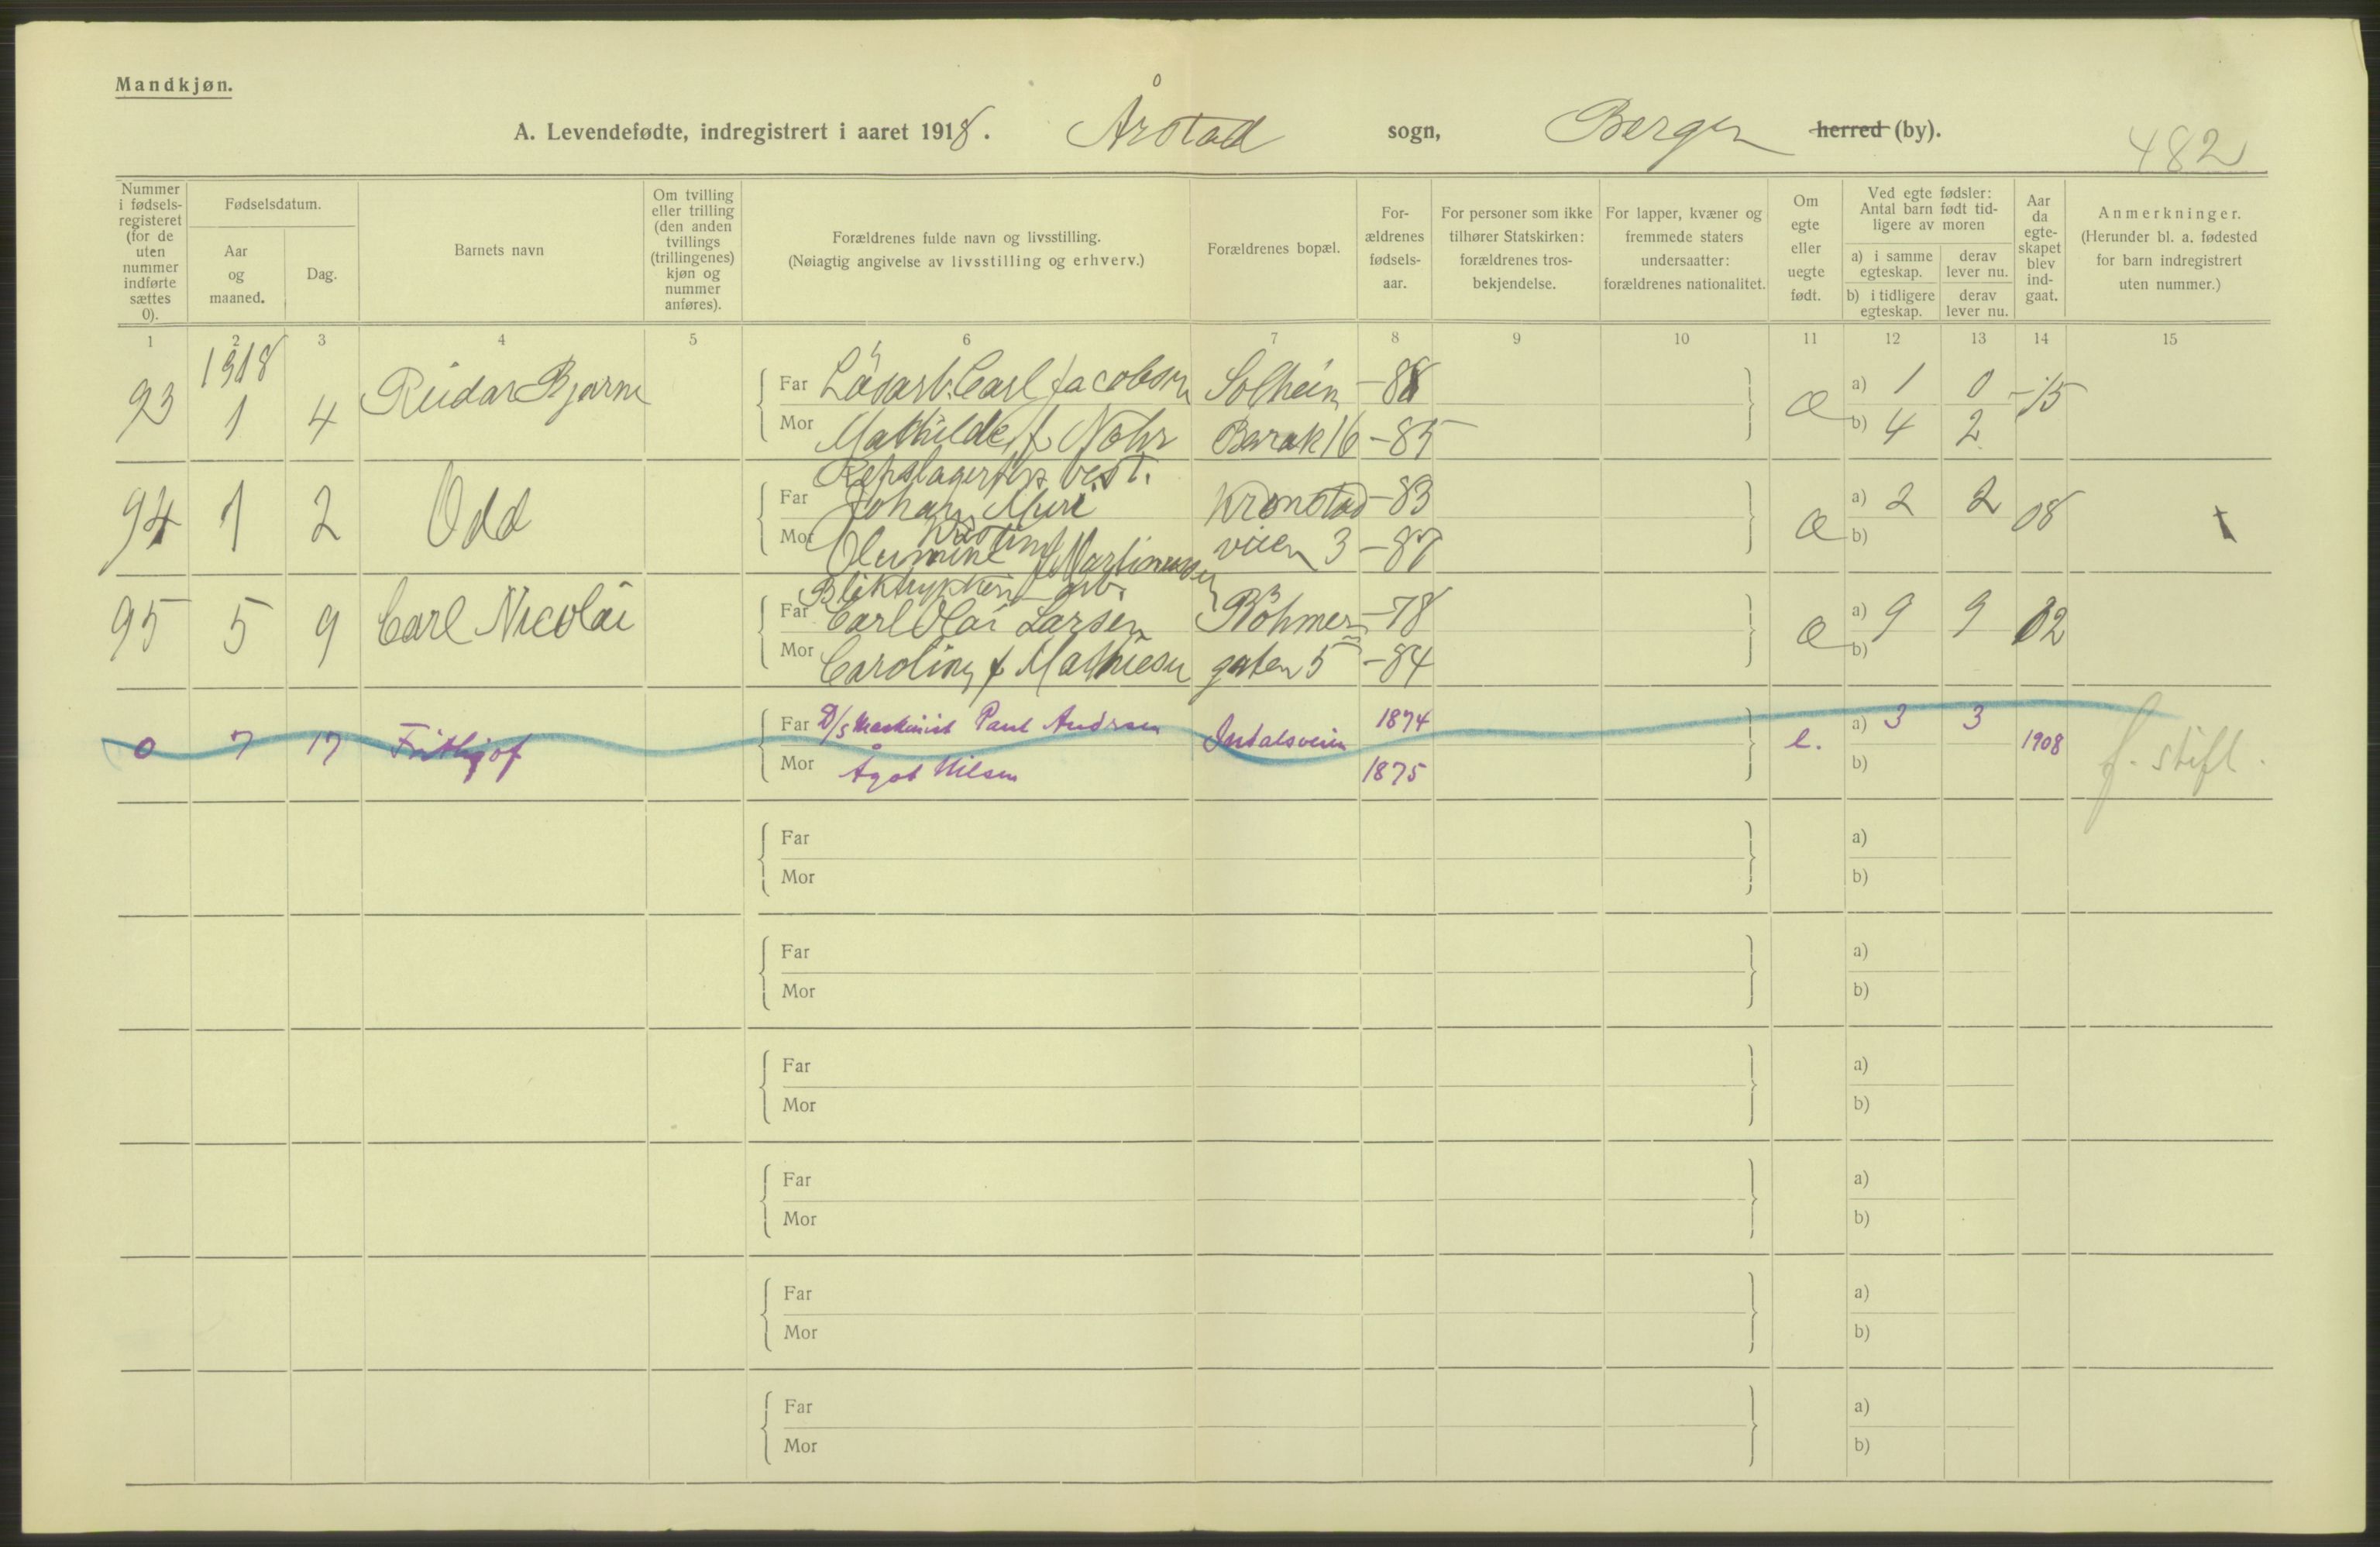 Mandkjøn.
A. Levendefødte, indregistrert i aaret 1918. Årstad sogn, Bergen herred (by).
482
Nummer i fødsels-registeret (for de uten nummer indførte sættes 0).
Fødselsdatum.
Aar og maaned.
Dag.
Barnets navn
Om tvilling eller trilling (den anden tvillings (trillingenes) kjøn og nummer anføres).
Forældrenes fulde navn og livsstilling.
(Nøiagtig angivelse av livsstilling og erhverv.)
Forældrenes bopæl.
For-ældrenes fødsels-aar.
For personer som ikke tilhører Statskirken: forældrenes tros-bekjendelse.
For lapper, kvæner og fremmede staters undersaatter: forældrenes nationalitet.
Om egte eller uegte født.
Ved egte fødsler: Antal barn født tid-ligere av moren
a) i samme egteskap.
derav lever nu.
b) i tidligere egteskap.
derav lever nu.
Aar da egte-skapet blev ind-gaat.
Anmerkninger.
(Herunder bl. a. fødested for barn indregistrert uten nummer.)
1 2 3 4 5 6 7 8 9 10 11 12 13 14 15
1918
93 1 4 Reidar Bjarne
Far Løsarb. Carl Jacobsen Solheim -88 a) 1 0 -15
Mor Mathilde f Nohr Barak 16 -85 Æ b) 4 2
94 1 2 Odd
Repslagerarb. best.
Far Johan Mure Kronstad -83 a) 2 2 08
Kristine
Mor Olumine f Martinussen veien 3 -87 Æ b)
95 5 9 Carl Nicolai
Bliktrykkeri arb.
Far Carl Olai Larsen Böhmer -78 a) 9 9 02
Mor Caroline f Mathiesen gaten 5 -84 Æ b)
0 7 17 Frithjof
Far D/s Maskinist Paul Andrsen Indalsveien 1874 e. a) 3 3 1908 f. stift.
Mor Ågot Nilsen 1875 b)
Far a)
Mor b)
Far a)
Mor b)
Far a)
Mor b)
Far a)
Mor b)
Far a)
Mor b)
Far a)
Mor b)